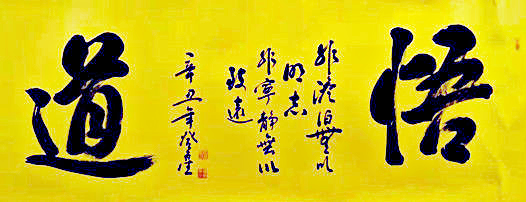 悟
非淡泊無以
明志
非寧靜無以
致遠
辛丑年
道